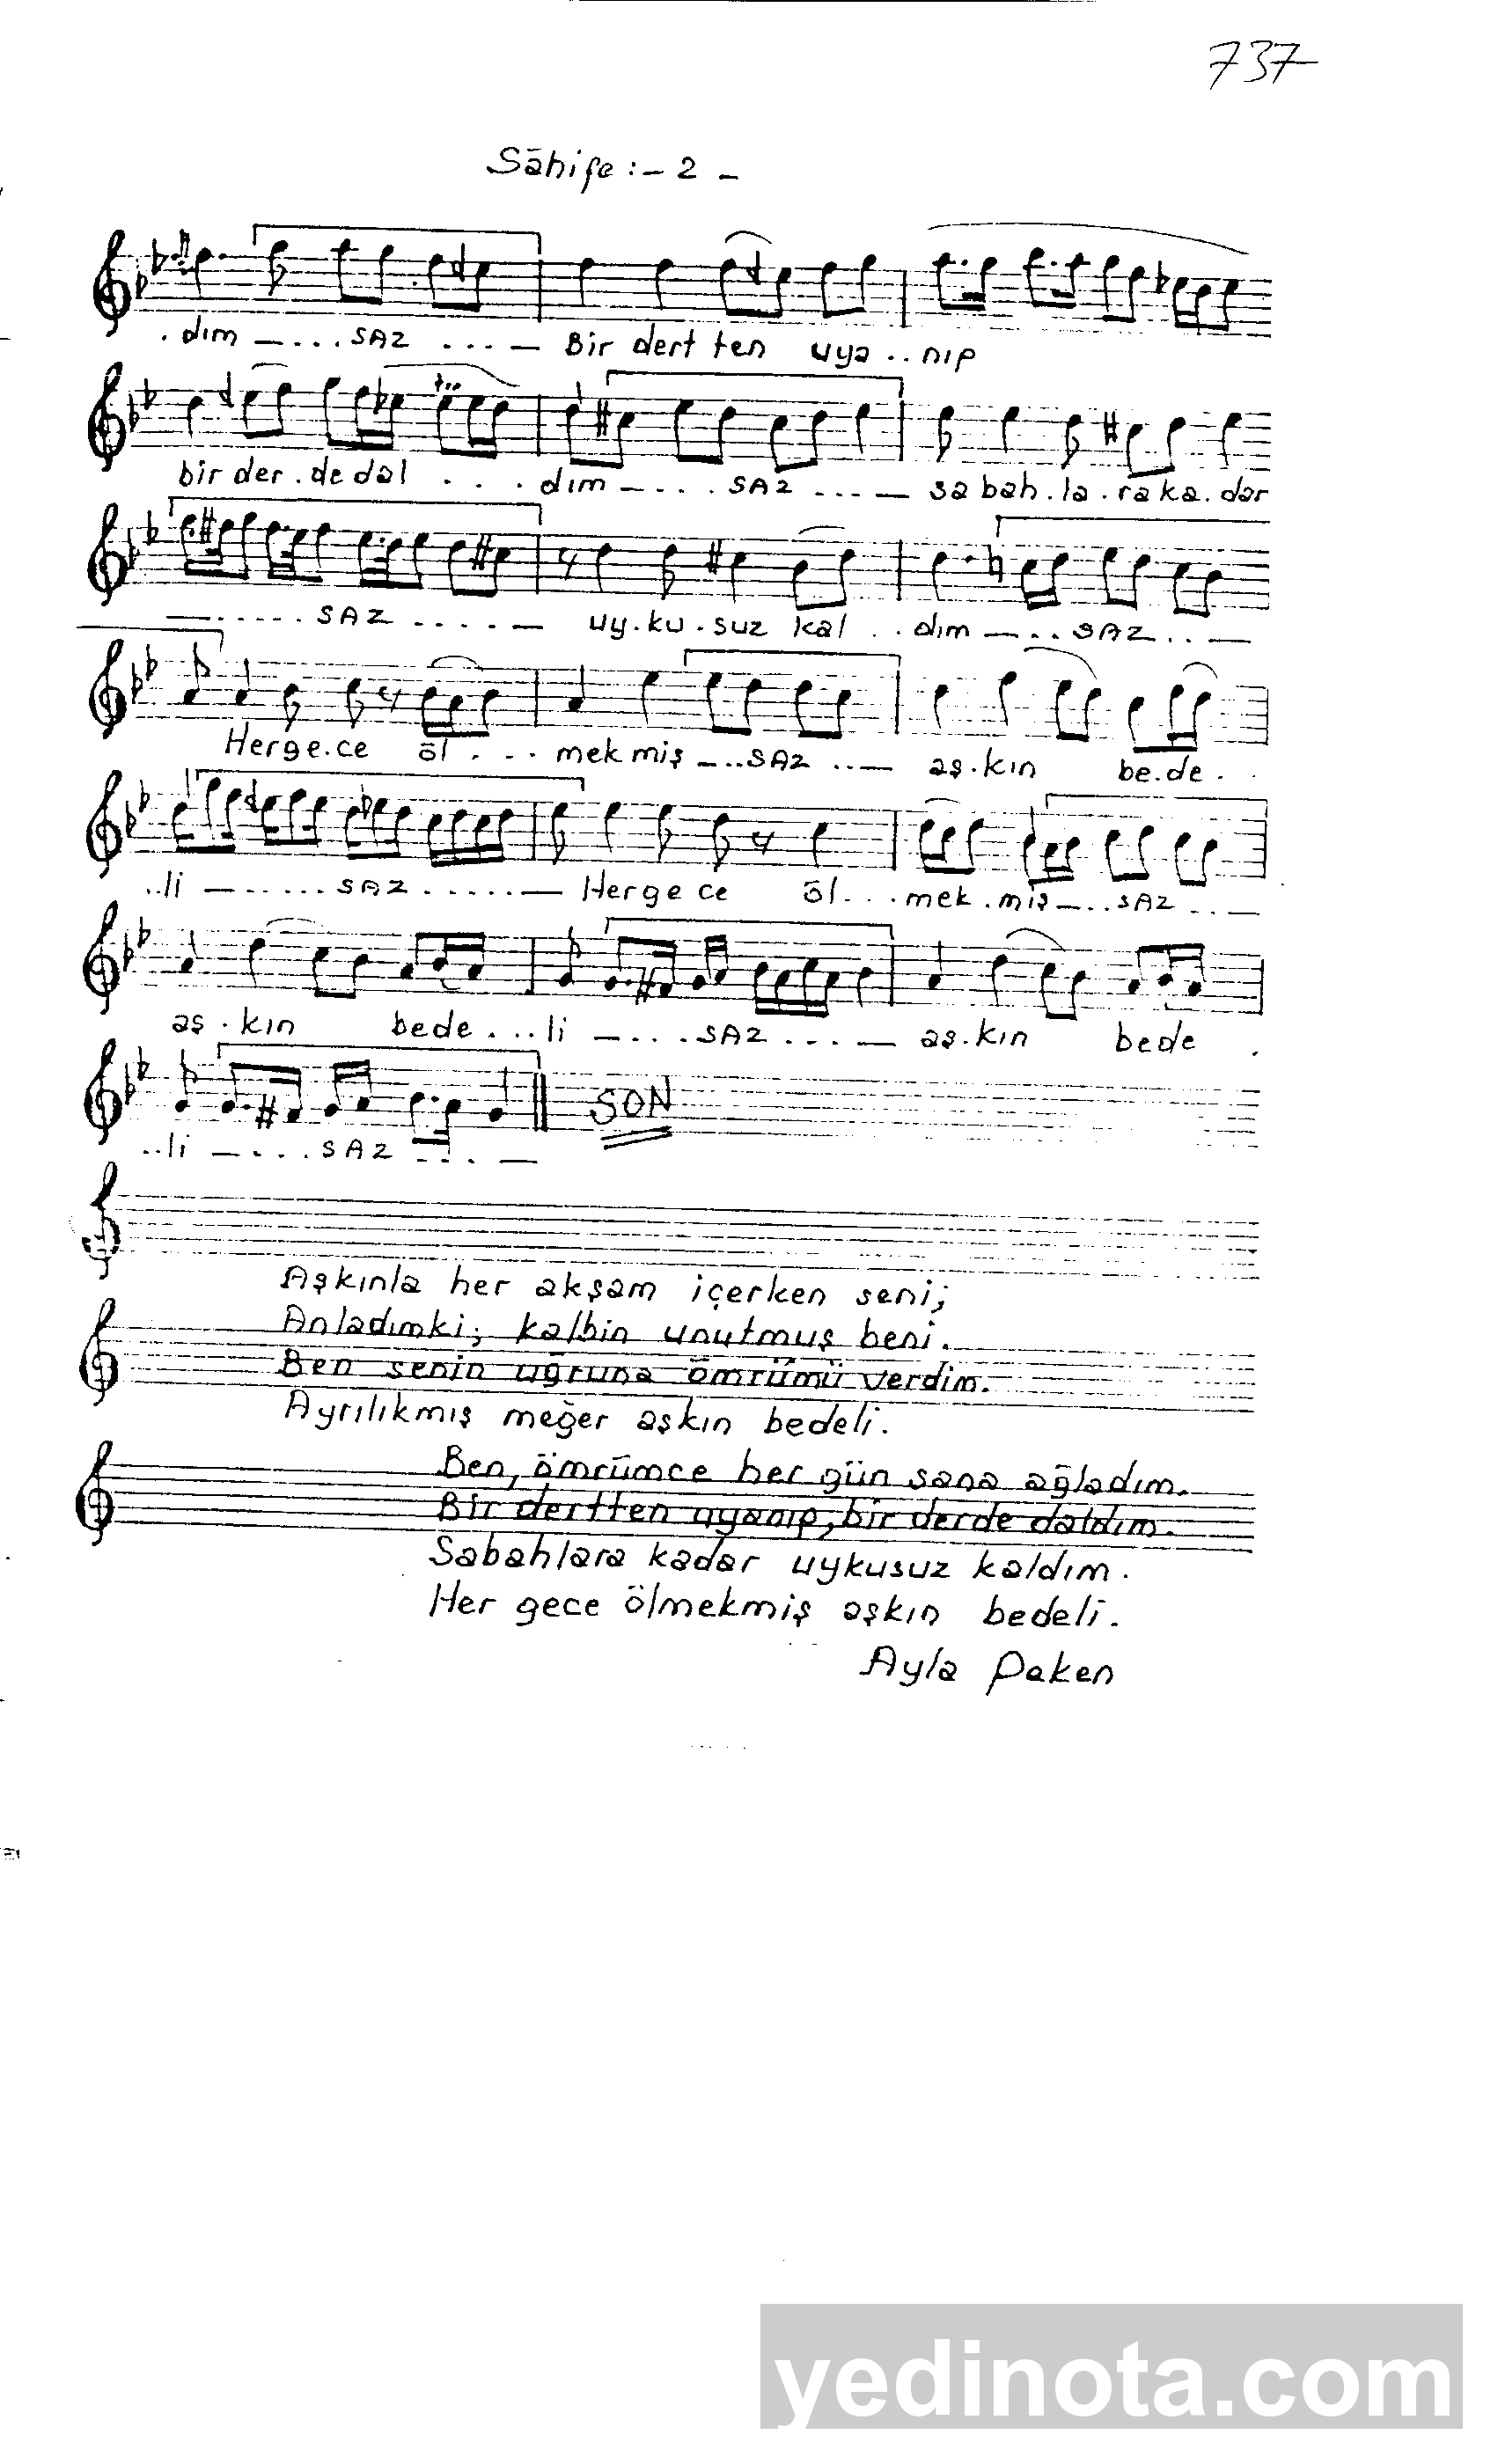 737
Sāhife : - 2 -
. dım - ... SAZ ... - Bir dert ten uya .. nıp
bir der . de dal . . . dım - ... . SAZ ... - sa bah . la . ra ka . dar
- ..... SAZ ..... - uy . ku . suz kal .. dım - ... SAZ .. -
Her ge . ce öl . . . mek miş - .. SAZ .. - aş . kın be . de . .
.. li - ...... SAZ ..... - Her ge ce öl ... mek . miş - .. SAZ .. -
aş . kın be de ... li - ... . SAZ ... - aş . kın be de .
.. li - ... . SAZ ... . -
SON
Aşkınla her akşam içerken seni;
Anladımki; kalbin unutmuş beni.
Ben senin uğruna ömrümü verdim.
Ayrılıkmış meğer aşkın bedeli.
Ben, ömrümce her gün sana ağladım.
Bir dertten uyanıp, bir derde daldım.
Sabahlara kadar uykusuz kaldım.
Her gece ölmekmiş aşkın bedeli.
Ayla Paken
yedinota.com